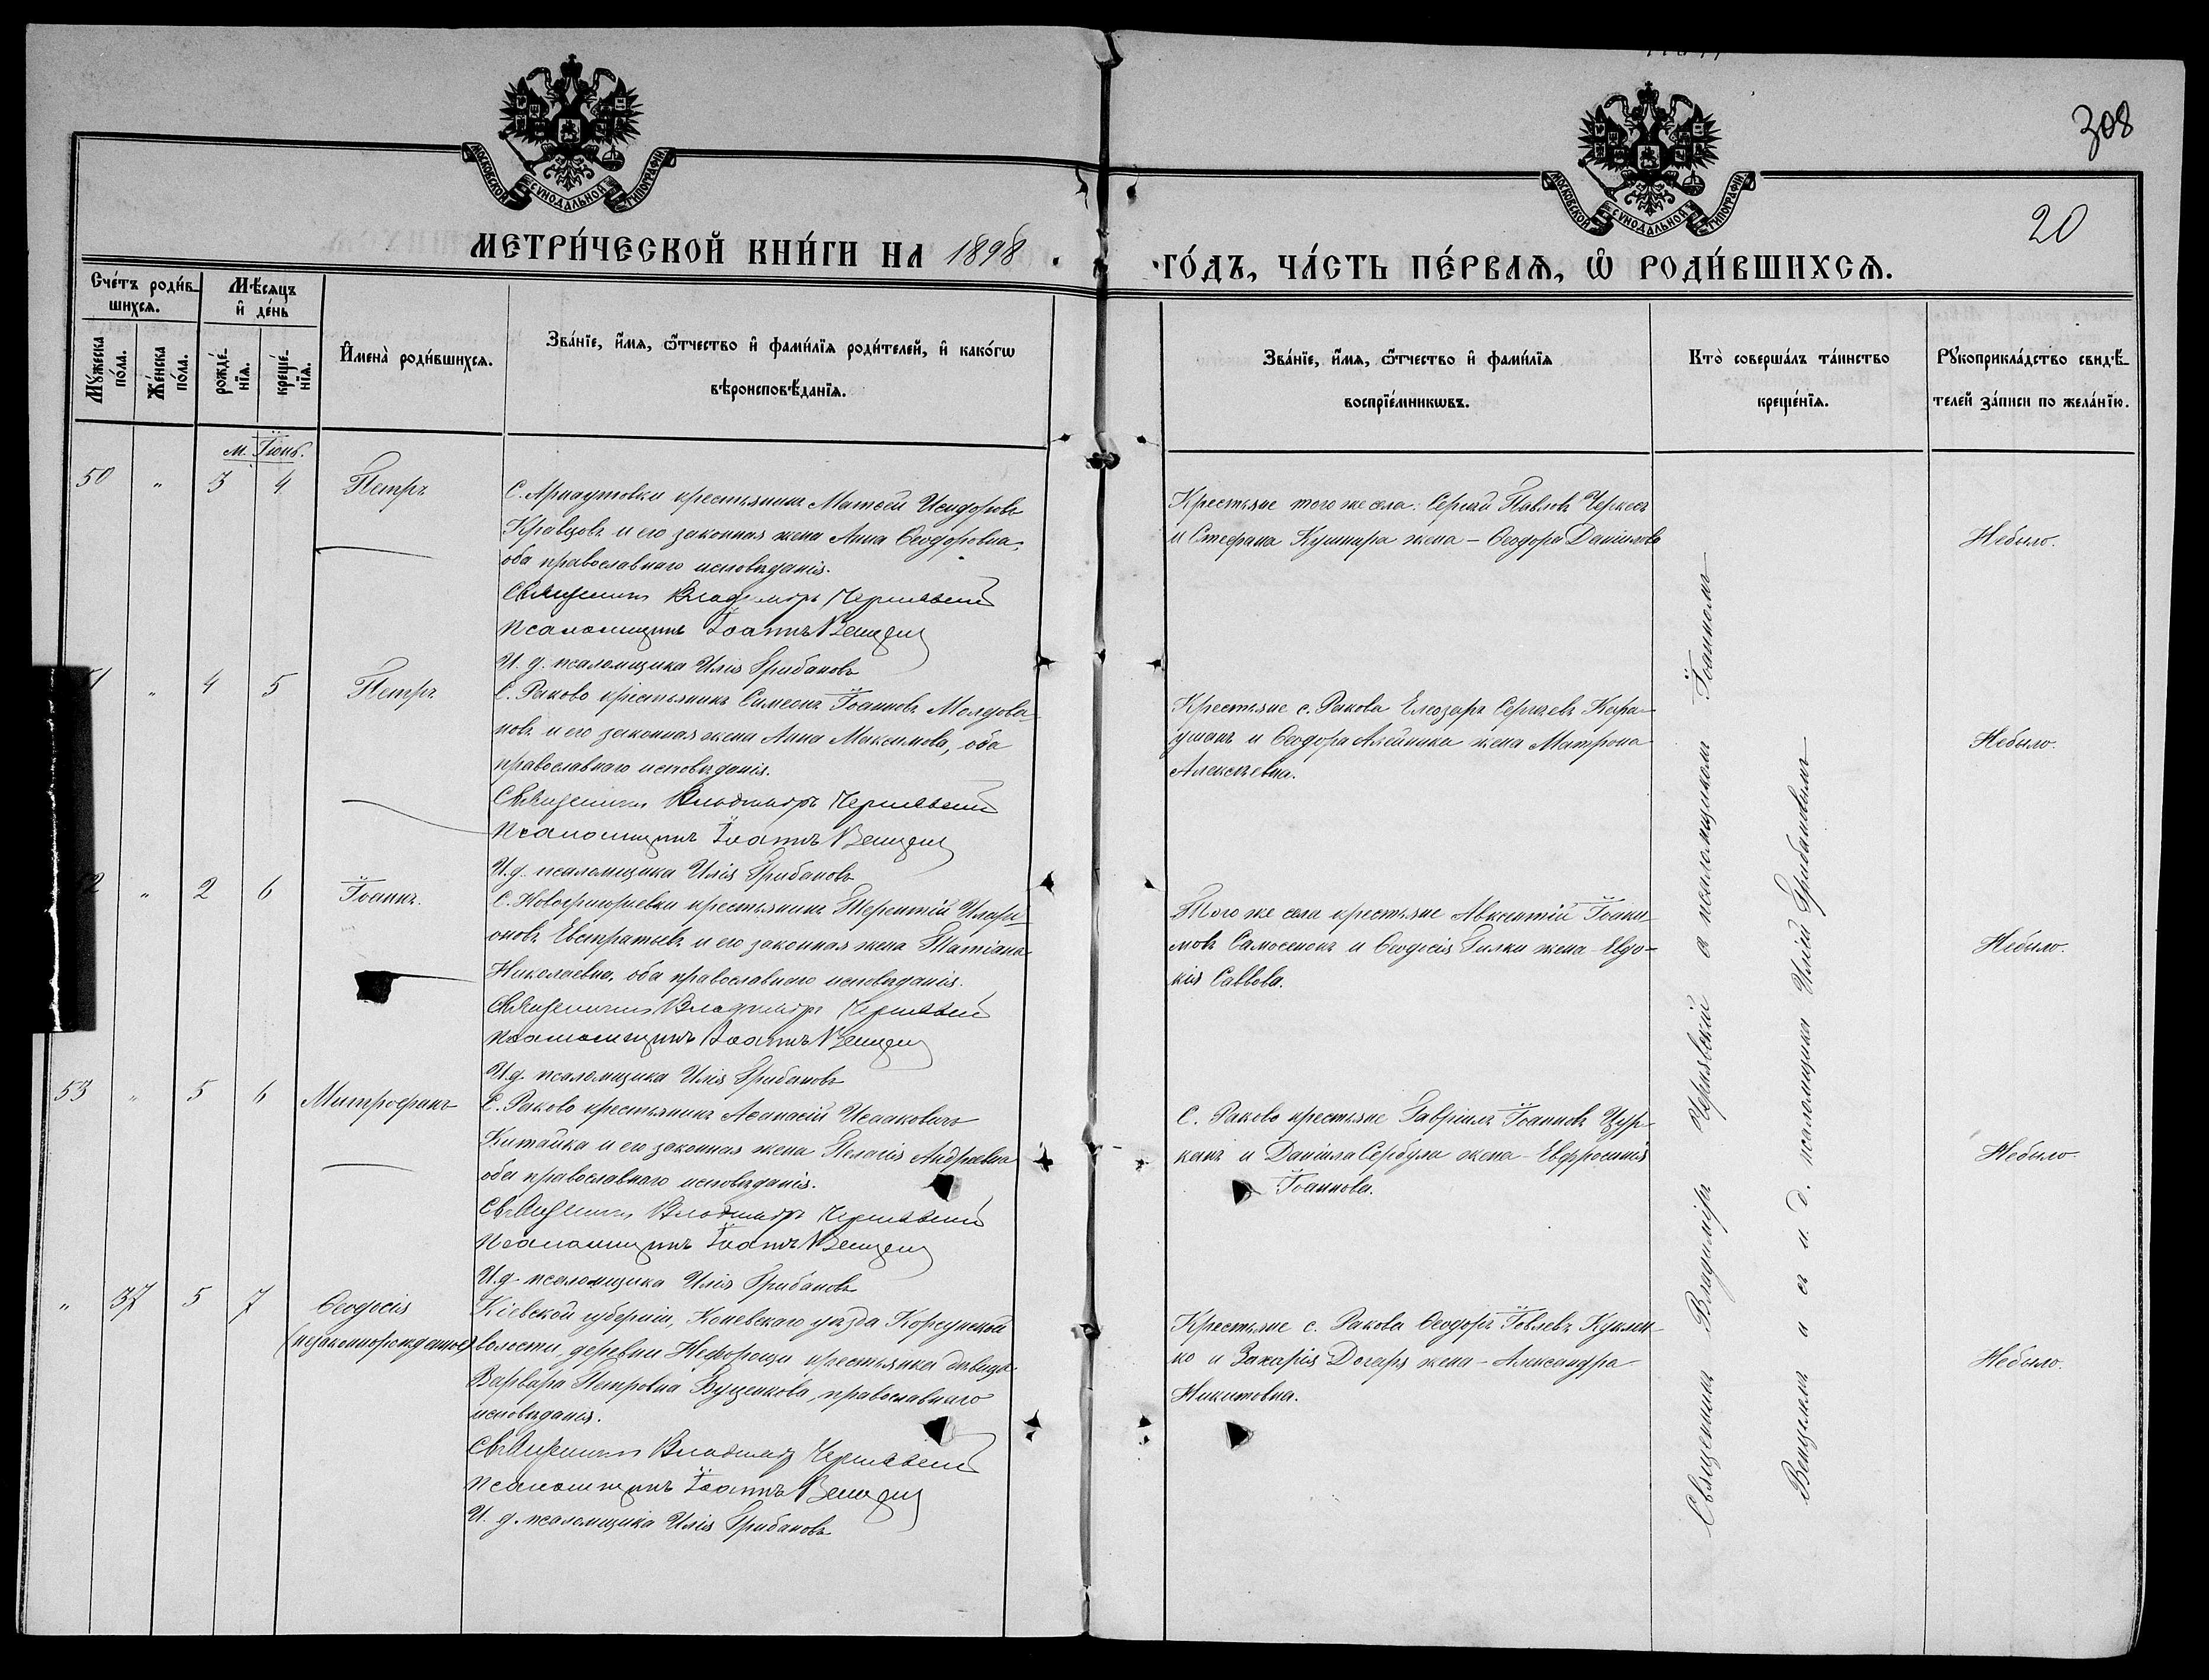 308
20
МОСКОВСКОЙ СѴНОДАЛЬНОЙ ТИПОГРАФІИ
МОСКОВСКОЙ СѴНОДАЛЬНОЙ ТИПОГРАФІИ
МЕТРИ́ЧЕСКОЙ КНИ́ГИ НА 1898 ГО́ДЪ, ЧА́СТЬ ПЕ́РВАѦ, Ѽ РОДИ́ВШИХСѦ.
Сче́тъ роди́в-
шихсѧ.
Мѣ́сѧцъ
и҆ де́нь
Мꙋ́жеска
по́ла.
Же́нска
по́ла.
рожде́-
нїѧ.
креще́-
нїѧ.
И҆мена̀ роди́вшихсѧ.
Зва́нїе, и҆́мѧ, ѻ҆́тчество и҆ фами́лїѧ роди́телей, и҆ како́гѡ
вѣроисповѣ́данїѧ.
Зва́нїе, и҆́мѧ, ѻ҆́тчество и҆ фами́лїѧ
воспрїе́мникѡвъ.
Кто̀ соверша́лъ та́инство
креще́нїѧ.
Рꙋкоприкла́дство свидѣ́-
телей за́писи по жела́нїю.
м. Іюнь.
50 " 3 4 Петръ
С. Арнаутовки крестьянинъ Матѳей Исидоровъ
Кравцовъ и его законная жена Анна Ѳеодоровна,
оба православнаго исповѣданія.
Священникъ Владиміръ Чернявскій
Псаломщикъ Іоаннъ Венцелъ
И. д. псаломщика Илія Грибановъ
Крестьяне того же села: Сергій Павловъ Черкесъ
и Стефана Кушнира жена – Ѳеодора Даніилова
Небыло.
51 " 4 5 Петръ
С. Раково крестьянинъ Симеонъ Іоанновъ Молдова-
новъ и его законная жена Анна Максимова, оба
православнаго исповѣданія.
Священникъ Владиміръ Чернявскій
Псаломщикъ Іоаннъ Венцелъ
И. д. псаломщика Илія Грибановъ
Крестьяне с. Ракова Елеазаръ Сергіевъ Кара-
ушанъ и Ѳеодора Алейника жена Матрона
Алексѣевна.
Небыло.
52 " 2 6 Іоаннъ.
С. Новогригорьевки крестьянинъ Терентій Илари-
оновъ Евстратьевъ и его законная жена Татіана
Николаевна, оба православнаго исповѣданія.
Священникъ Владиміръ Чернявскій
Псаломщикъ Іоаннъ Венцелъ
И. д. псаломщика Илія Грибановъ
Того же села крестьяне Авксентій Іоаки-
мовъ Самосенокъ и Ѳеодосія Гилки жена – Евдо-
кія Саввова.
Небыло.
53 " 5 6 Митрофанъ
С. Раково крестьянинъ Аѳанасій Исааковичъ
Китайка и его законная жена Пелагія Андреевна
оба православнаго исповѣданія.
Священникъ Владиміръ Чернявскій
Псаломщикъ Іоаннъ Венцелъ
И. д. псаломщика Илія Грибановъ
С. Раково крестьяне Гавріилъ Іоанновъ Цур-
канъ и Даніила Сербула жена – Евфросинія
Іоаннова.
Небыло.
" 37 5 7 Ѳеодосія
(незаконнорожденное)
Кіевской губерніи, Каневскаго уѣзда Корсунской
волости, деревни Нехворощи крестьянка дѣвица
Варвара Петровна Буценкова, православнаго
исповѣданія.
Священникъ Владиміръ Чернявскій
Псаломщикъ Іоаннъ Венцелъ
И. д. псаломщика Илія Грибановъ
Крестьяне с. Ракова Ѳеодоръ Іовлевъ Куклен-
ко и Захарія Догаря жена – Александра
Никитовна.
Небыло.
Священникъ Владиміръ Чернявскій съ псаломщикомъ Іоанномъ
Венцелемъ и съ и. д. псаломщика Иліей Грибановымъ